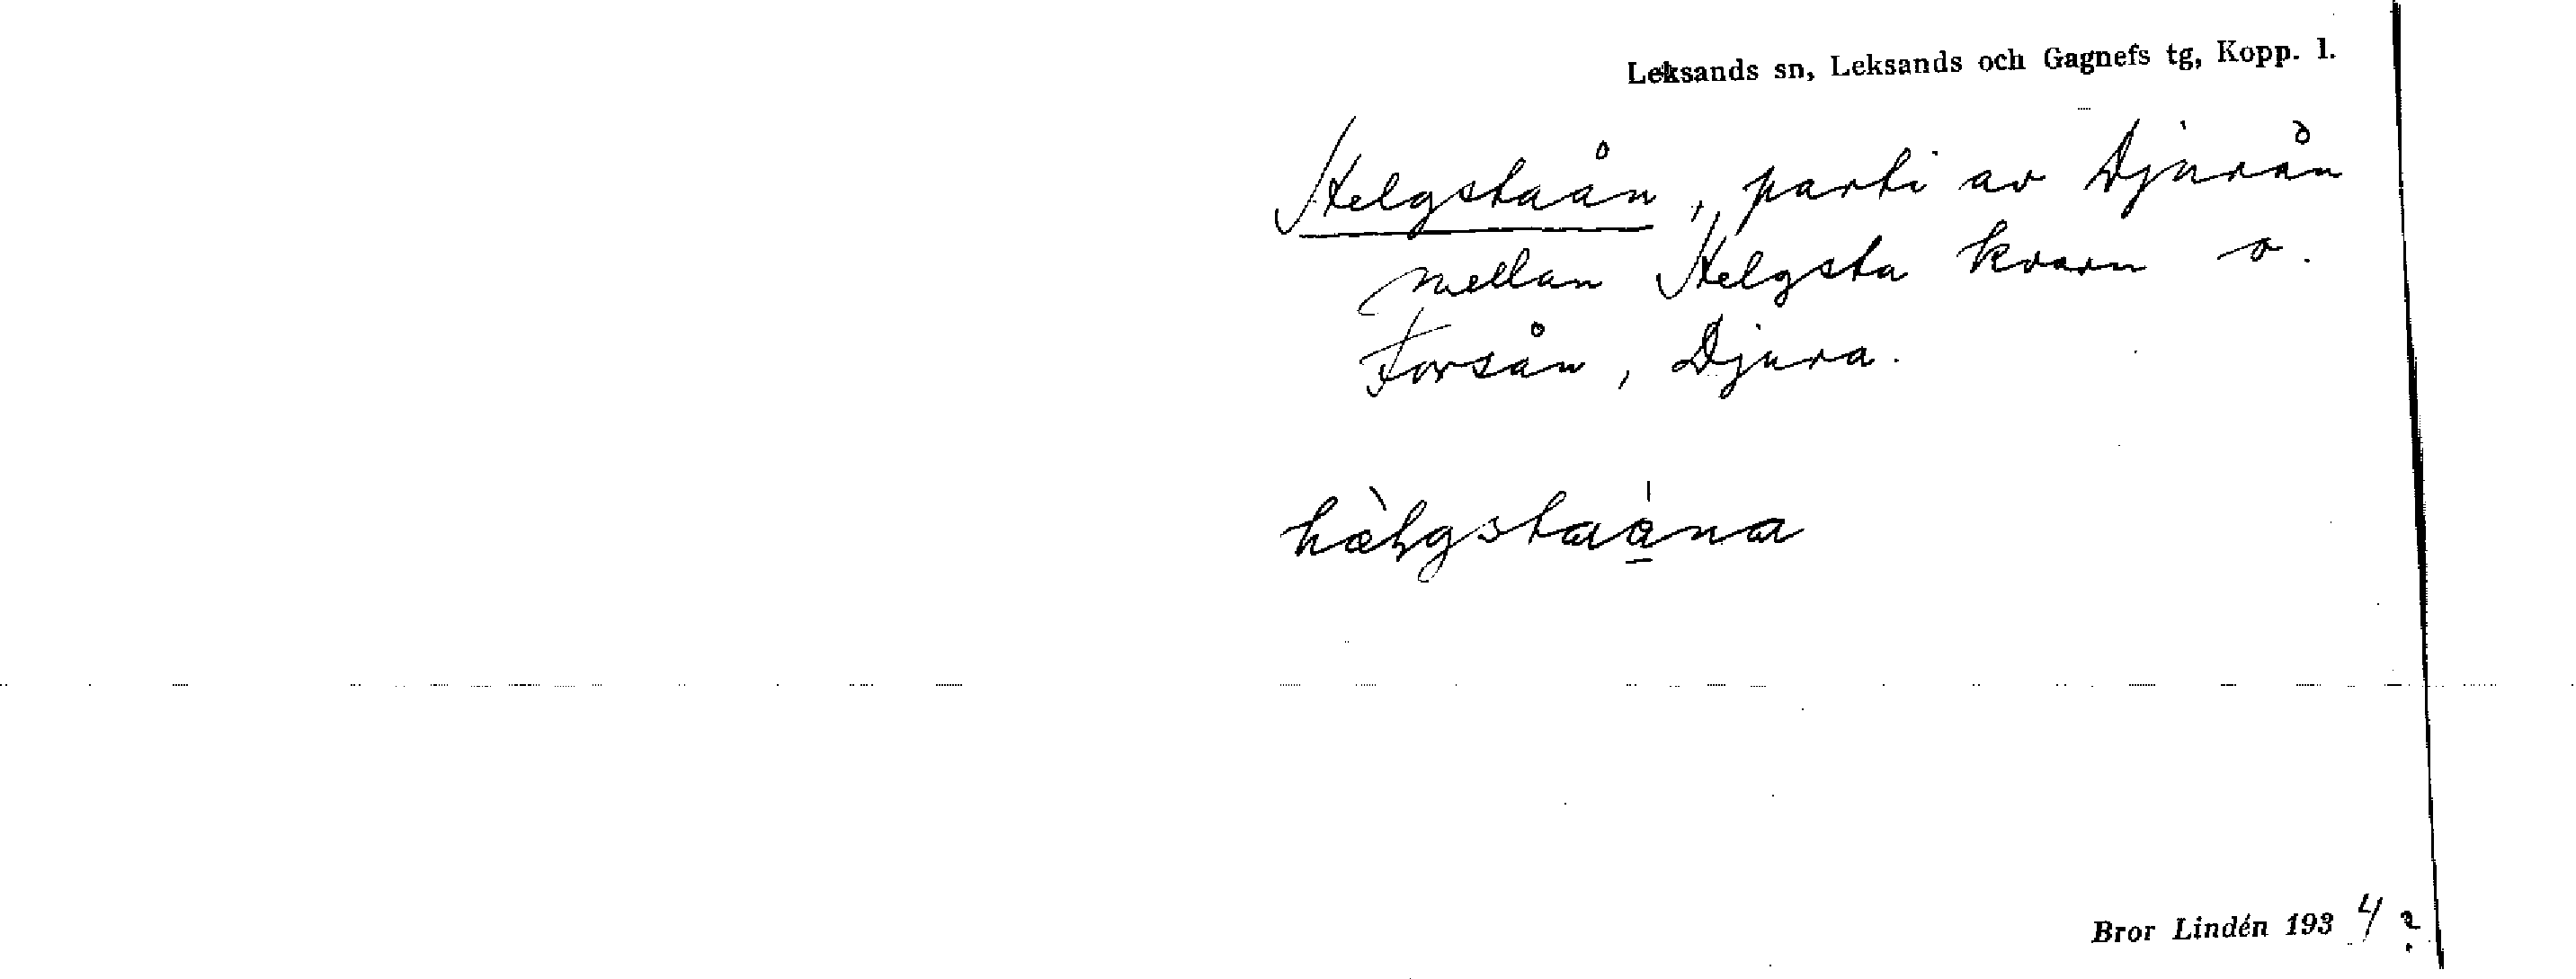 Leksands sn, Leksands och Gagnefs tg, Kopp. l.
Helgstaån, parti av Djurån
mellan Helgsta kvarn o.
Forsån, Djura.
Bror Lindén 1934?